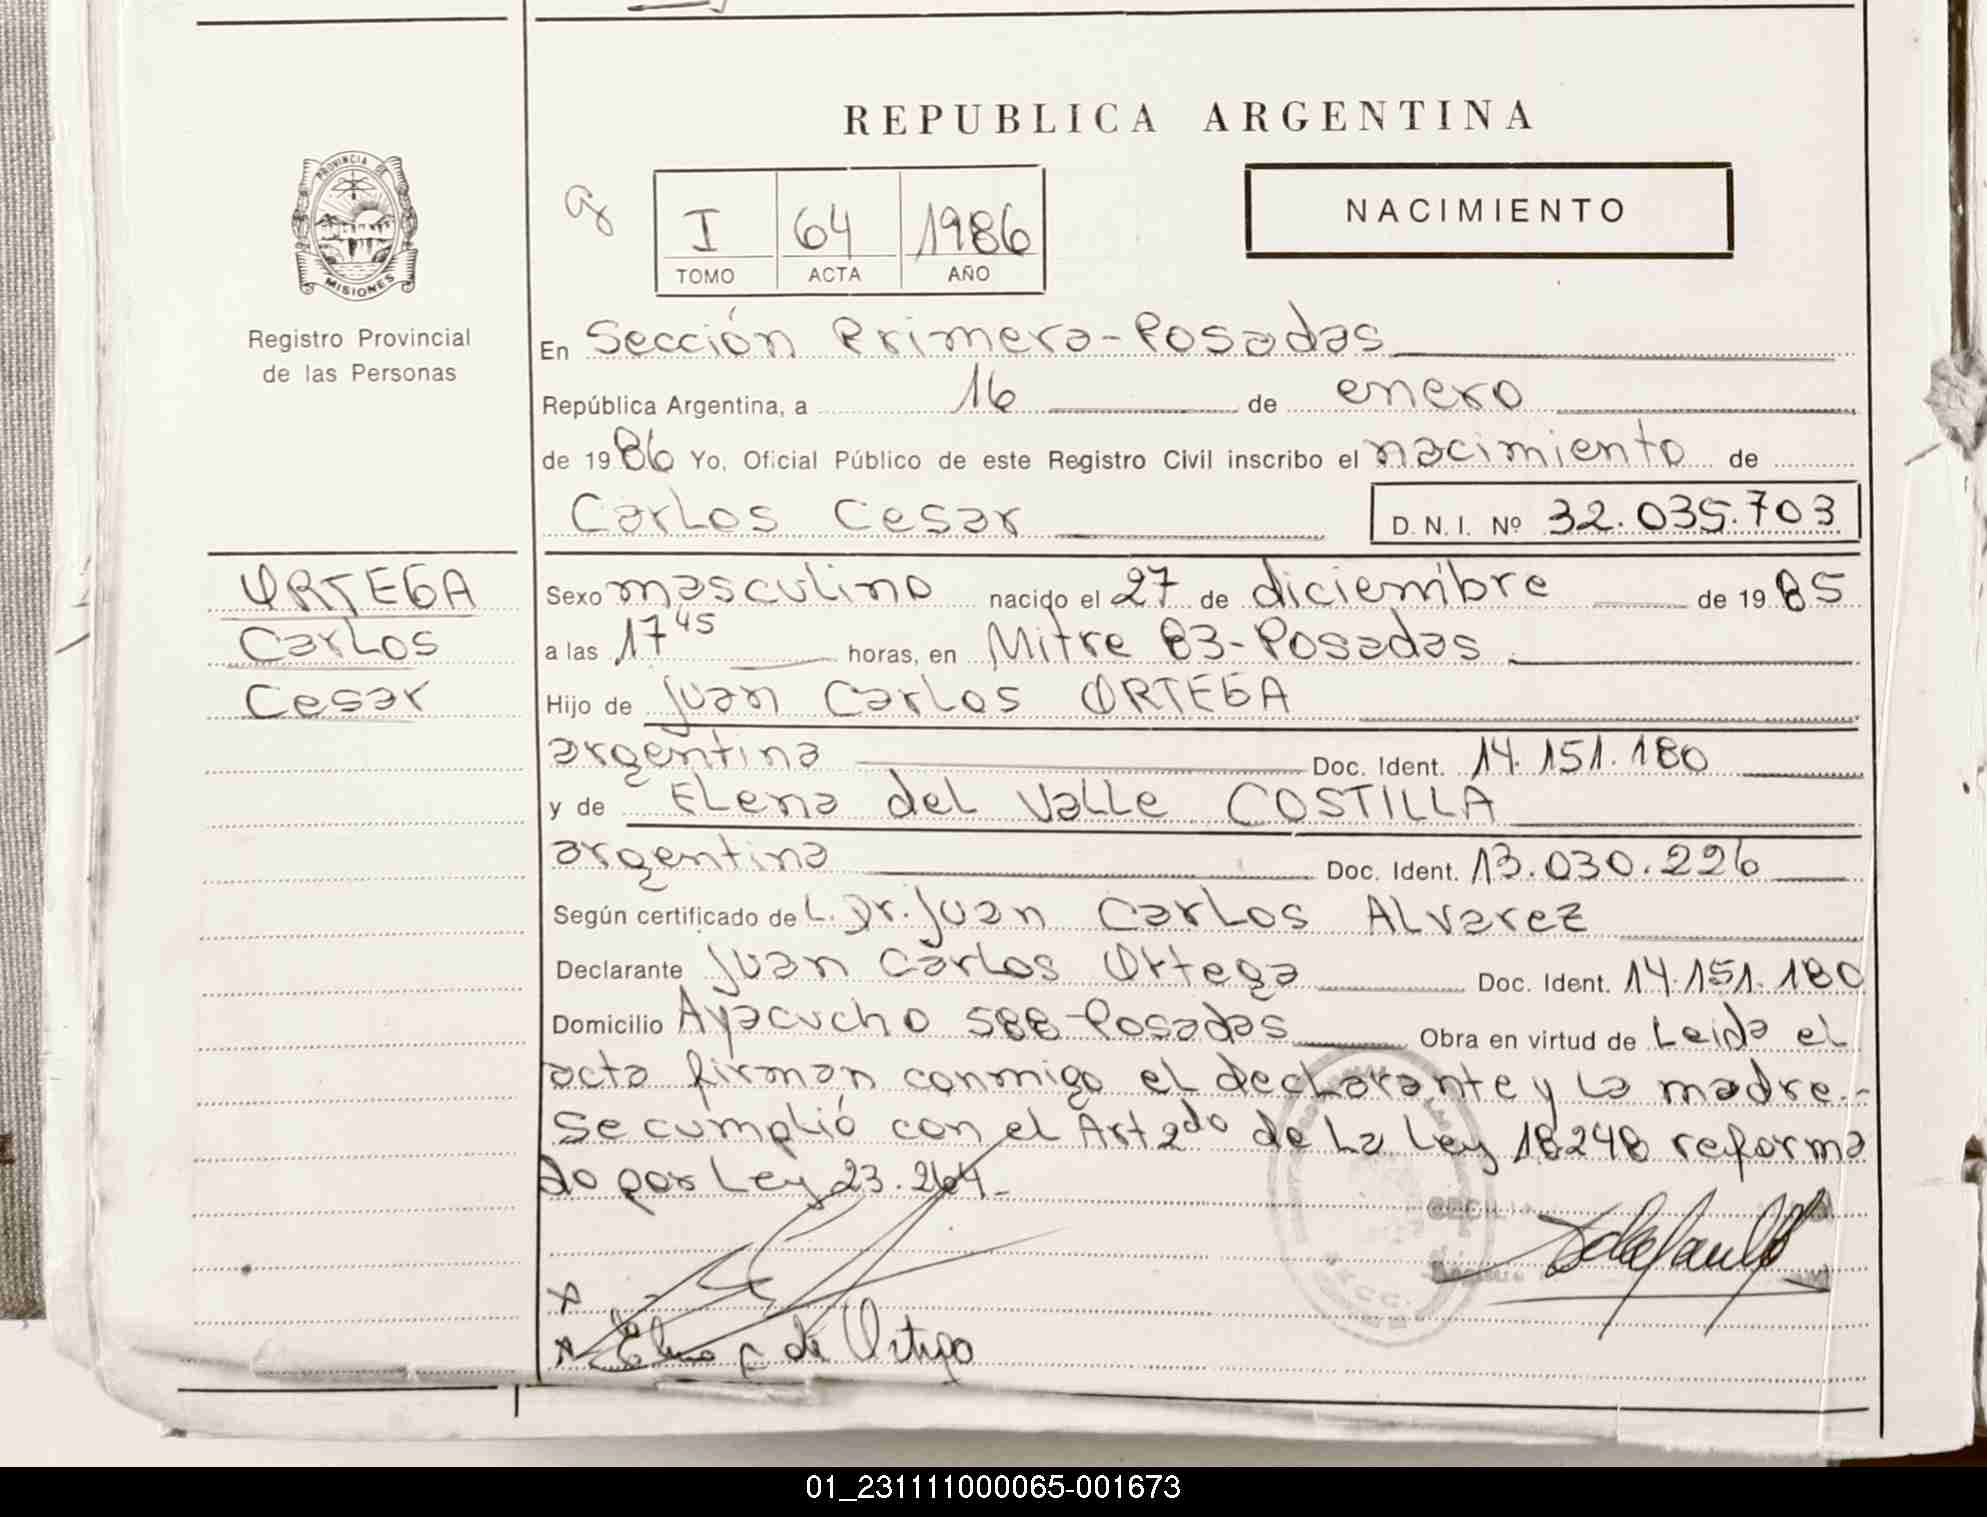 REPUBLICA ARGENTINA
PROVINCIA DE
MISIONES
Registro Provincial
de las Personas
I 64 1986
TOMO ACTA AÑO
NACIMIENTO
En Sección Primera-Posadas
República Argentina, a 16 de enero
de 1986 Yo, Oficial Público de este Registro Civil inscribo el nacimiento de
Carlos Cesar D.N.I. Nº 32.035.703
ORTEGA
Carlos
Cesar
Sexo masculino nacido el 27 de diciembre de 1985
a las 17 45 horas, en Mitre 83-Posadas
Hijo de Juan Carlos ORTEGA
argentina Doc. Ident. 14.151.180
y de Elena del Valle COSTILLA
argentina Doc. Ident. 13.030.226
Según certificado de L. Dr. Juan Carlos Alvarez
Declarante Juan Carlos Ortega Doc. Ident. 14.151.180
Domicilio Ayacucho 588-Posadas Obra en virtud de Leida el
acta firman conmigo el declarante y la madre.-
Se cumplió con el Art 2do de la Ley 18248 reforma
do por Ley 23.264-
x
x Elena C de Ortega
01_231111000065-001673